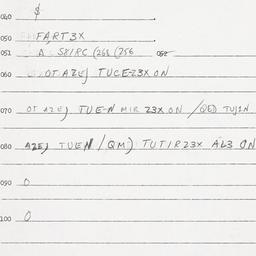 040 $
050 FART3X
051 A SKIRC (266 (256 052
060 OT AZEJ TUCE-Z3X ON
070 OT AZEJ TUE-N MIR Z3X ON / QED TUJZN
080 AZEJ TUEN / QM) TUTIRZ3X AL3 ON
090 0
100 0